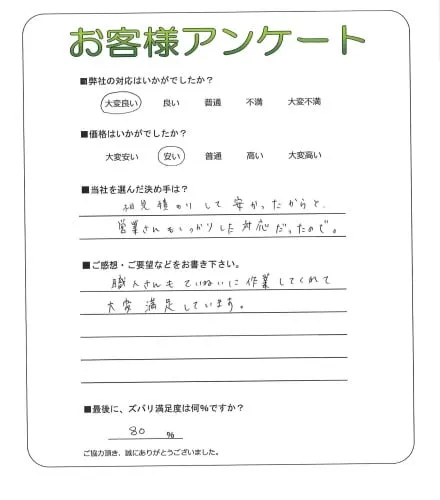 お客様アンケート
■弊社の対応はいかがでしたか？
大変良い 良い 普通 不満 大変不満
■価格はいかがでしたか？
大変安い 安い 普通 高い 大変高い
■当社を選んだ決め手は？
相見積りして安かったからと、
営業さんもしっかりした対応だったので。
■ご感想・ご要望などをお書き下さい。
職人さんもていねいに作業してくれて
大変満足しています。
■最後に、ズバリ満足度は何%ですか？
80 %
ご協力頂き、誠にありがとうございました。